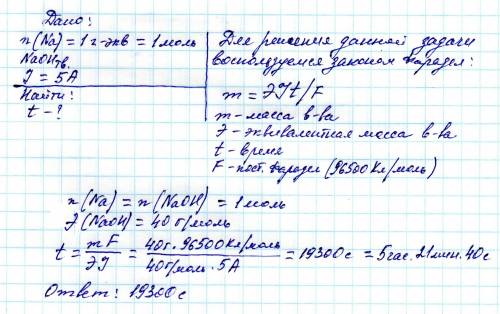 Дано:
n(Na) = 1 г-экв = 1 моль
NaOH тв.
I = 5A
Найти:
t - ?
Для решения данной задачи
воспользуемся законом Фарадея:
m = ЭIt/F
m - масса в-ва
Э - эквивалентная масса в-ва
t - время
F - пост. Фарадея (96500 Кл/моль)
n(Na) = n(NaOH) = 1 моль
Э(NaOH) = 40 г/моль
t = mF/ЭI = 40г. 96500 Кл/моль / 40г/моль. 5A = 19300 с = 5 час. 21 мин. 40с
Ответ: 19300 с